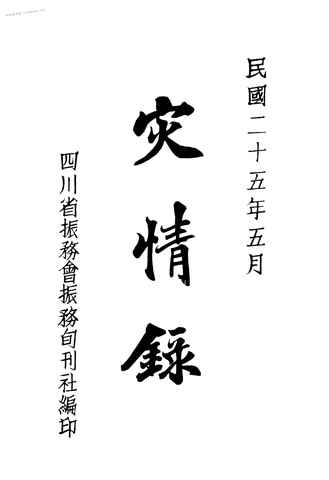 民國二十五年五月
灾情録
四川省振務會振務旬刊社編印